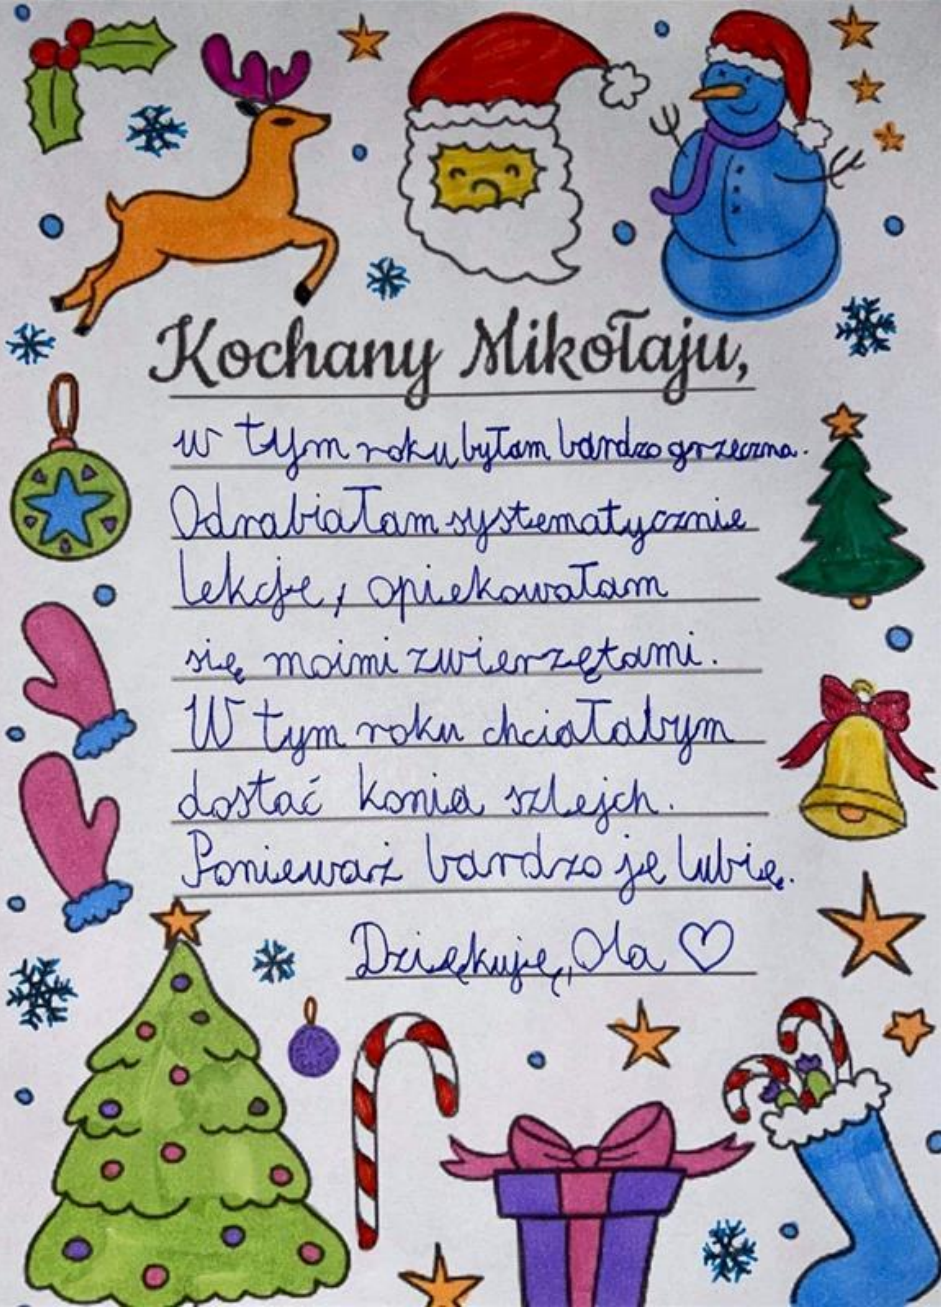 Kochany Mikołaju,
w tym roku byłam bardzo grzeczna.
Odrabiałam systematycznie
lekcje, opiekowałam
się moimi zwierzętami.
W tym roku chciałabym
dostać konia szlejch.
Ponieważ bardzo je lubię.
Dziękuję, Ola ♡